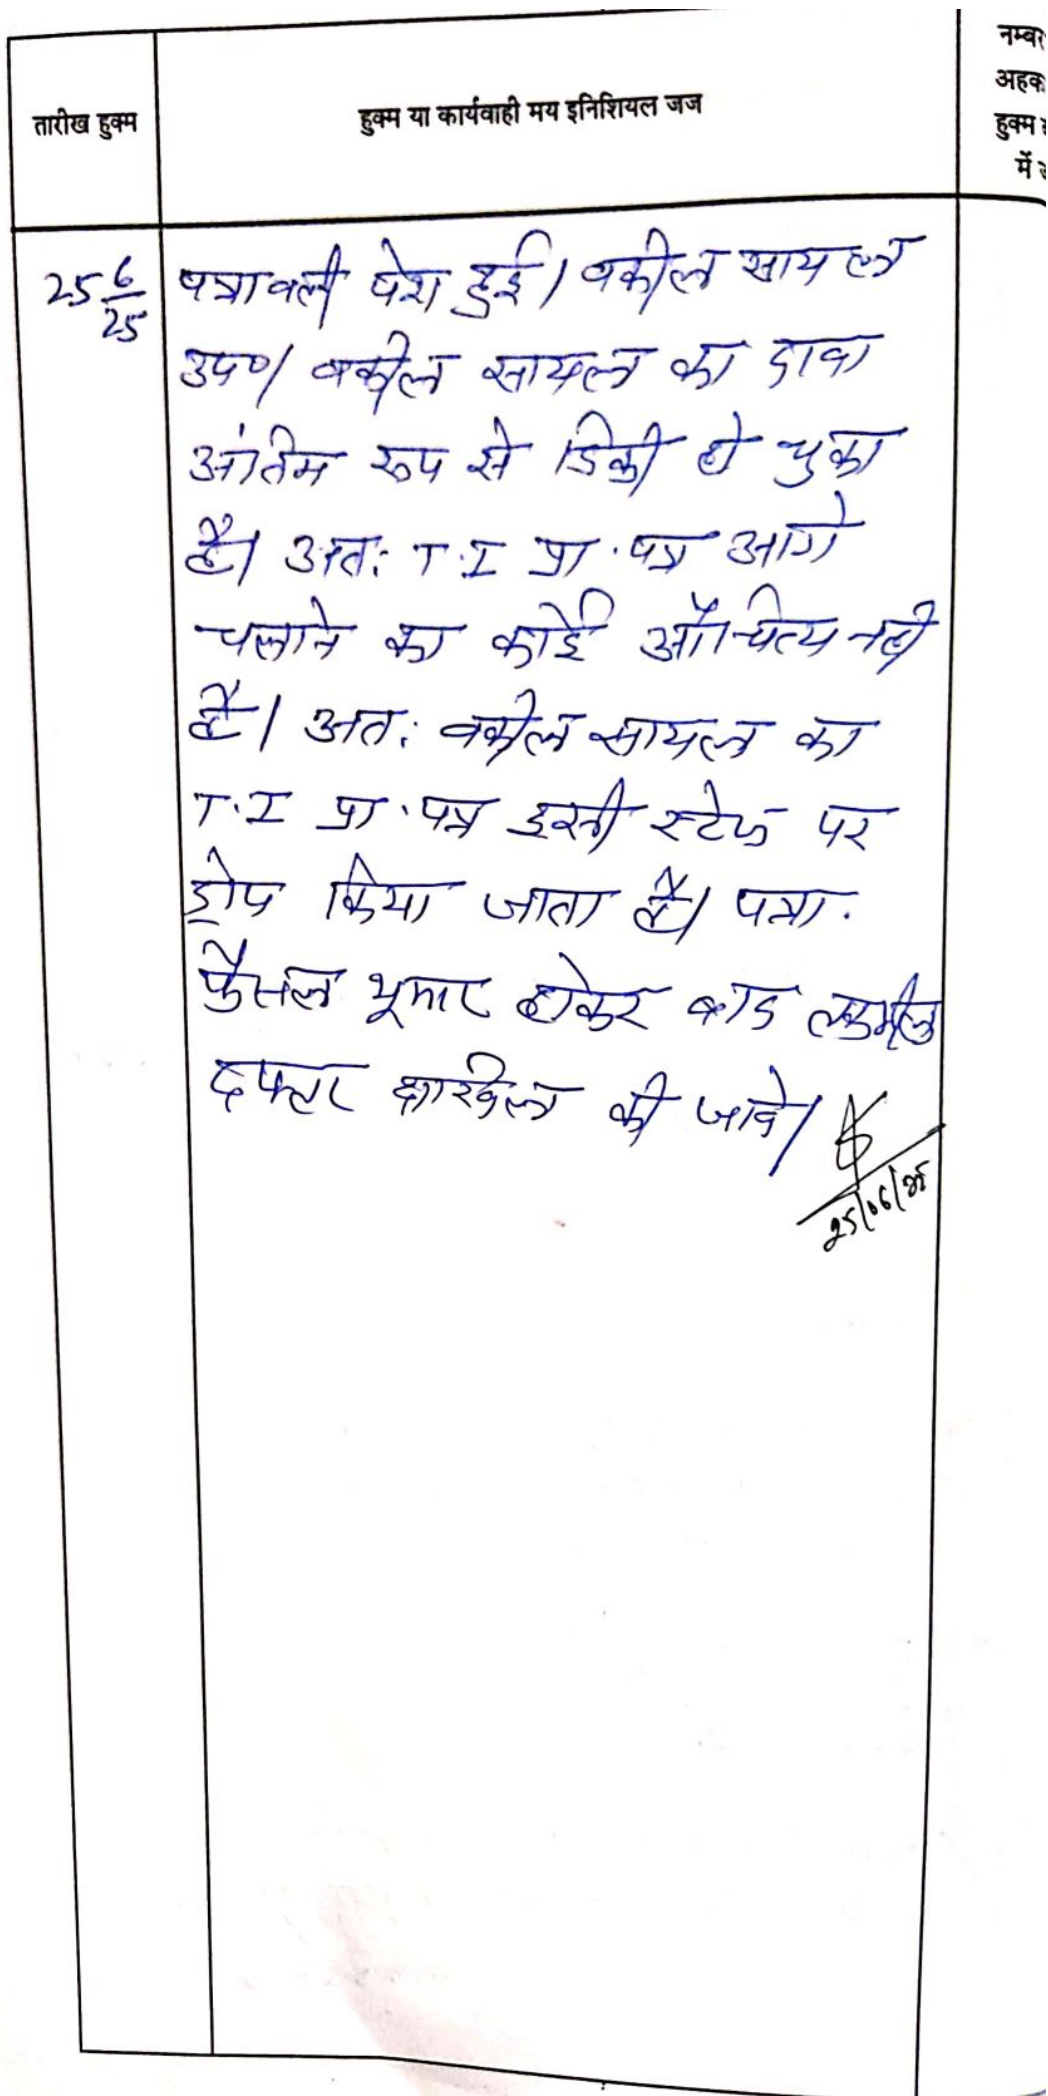 नम्बर
अहक
हुक्म
में
तारीख हुक्म
हुक्म या कार्यवाही मय इनिशियल जज
25 6/25
पत्रावली पेश हुई। वकील सायल
उप०। वकील सायल का दावा
अंतिम रूप से डिक्री हो चुका
है। अतः T.I प्रा.पत्र आगे
चलाने का कोई औचित्य नही
है। अतः वकील सायल का
T.I प्रा.पत्र इसी स्टेज पर
ड्रोप किया जाता है। पत्रा.
फैसल शुमार होकर बाद तकमील
दफ्तर दाखिल की जावे।
25/06/25